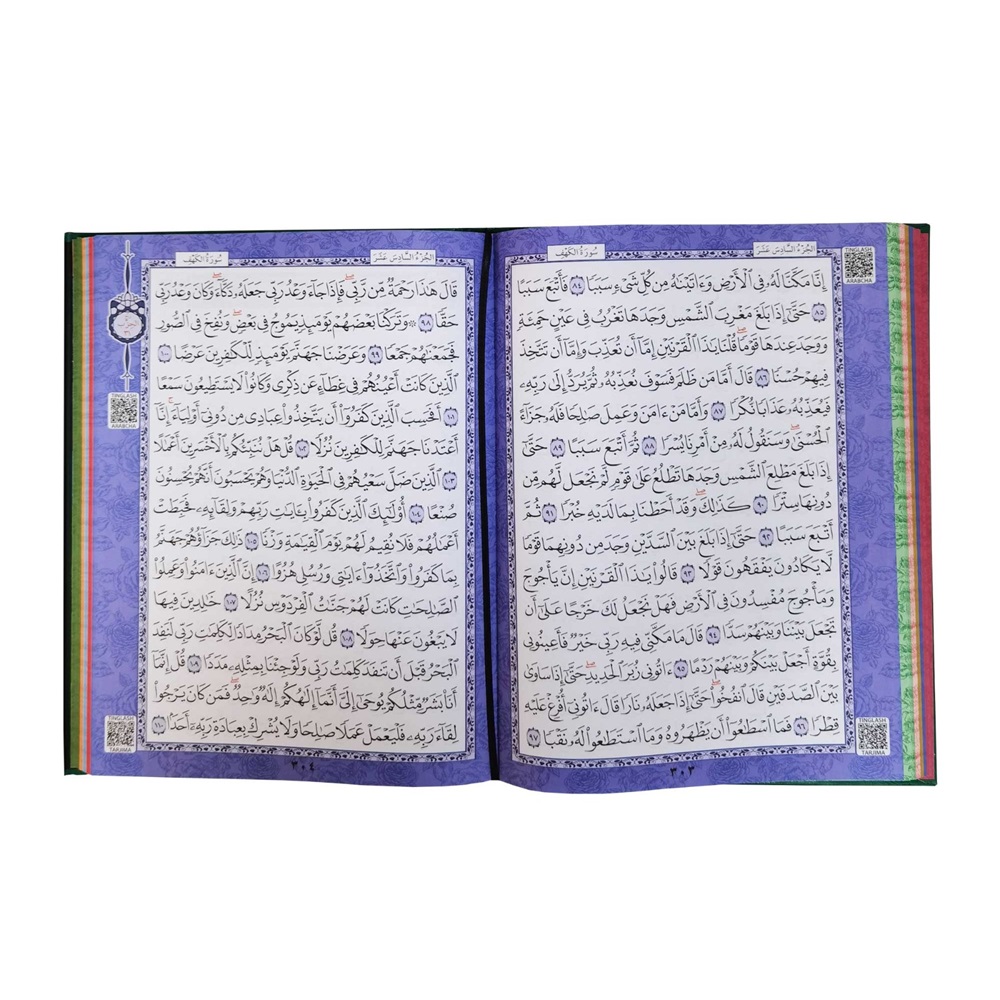 الجُزْءُ السَّادِسَ عَشَرَ
سُورَةُ الكَهْفِ
TINGLASH
ARABCHA
إِنَّا مَكَّنَّا لَهُۥ فِى ٱلْأَرْضِ وَءَاتَيْنَٰهُ مِن كُلِّ شَىْءٍ سَبَبًا ٨٤ فَأَتْبَعَ سَبَبًا
٨٥ حَتَّىٰٓ إِذَا بَلَغَ مَغْرِبَ ٱلشَّمْسِ وَجَدَهَا تَغْرُبُ فِى عَيْنٍ حَمِئَةٍ
وَوَجَدَ عِندَهَا قَوْمًا ۗ قُلْنَا يَٰذَا ٱلْقَرْنَيْنِ إِمَّآ أَن تُعَذِّبَ وَإِمَّآ أَن تَتَّخِذَ
فِيهِمْ حُسْنًا ٨٦ قَالَ أَمَّا مَن ظَلَمَ فَسَوْفَ نُعَذِّبُهُۥ ثُمَّ يُرَدُّ إِلَىٰ رَبِّهِۦ
فَيُعَذِّبُهُۥ عَذَابًا نُّكْرًا ٨٧ وَأَمَّا مَنْ ءَامَنَ وَعَمِلَ صَٰلِحًا فَلَهُۥ جَزَآءً
ٱلْحُسْنَىٰ ۖ وَسَنَقُولُ لَهُۥ مِنْ أَمْرِنَا يُسْرًا ٨٨ ثُمَّ أَتْبَعَ سَبَبًا ٨٩ حَتَّىٰٓ
إِذَا بَلَغَ مَطْلِعَ ٱلشَّمْسِ وَجَدَهَا تَطْلُعُ عَلَىٰ قَوْمٍ لَّمْ نَجْعَل لَّهُم مِّن
دُونِهَا سِتْرًا ٩٠ كَذَٰلِكَ ۖ وَقَدْ أَحَطْنَا بِمَا لَدَيْهِ خُبْرًا ٩١ ثُمَّ
أَتْبَعَ سَبَبًا ٩٢ حَتَّىٰٓ إِذَا بَلَغَ بَيْنَ ٱلسَّدَّيْنِ وَجَدَ مِن دُونِهِمَا قَوْمًا
لَّا يَكَادُونَ يَفْقَهُونَ قَوْلًا ٩٣ قَالُوا۟ يَٰذَا ٱلْقَرْنَيْنِ إِنَّ يَأْجُوجَ
وَمَأْجُوجَ مُفْسِدُونَ فِى ٱلْأَرْضِ فَهَلْ نَجْعَلُ لَكَ خَرْجًا عَلَىٰٓ أَن
تَجْعَلَ بَيْنَنَا وَبَيْنَهُمْ سَدًّا ٩٤ قَالَ مَا مَكَّنِّى فِيهِ رَبِّى خَيْرٌ فَأَعِينُونِى
بِقُوَّةٍ أَجْعَلْ بَيْنَكُمْ وَبَيْنَهُمْ رَدْمًا ٩٥ ءَاتُونِى زُبَرَ ٱلْحَدِيدِ ۖ حَتَّىٰٓ إِذَا سَاوَىٰ
بَيْنَ ٱلصَّدَفَيْنِ قَالَ ٱنفُخُوا۟ ۖ حَتَّىٰٓ إِذَا جَعَلَهُۥ نَارًا قَالَ ءَاتُونِىٓ أُفْرِغْ عَلَيْهِ
قِطْرًا ٩٦ فَمَا ٱسْطَٰعُوٓا۟ أَن يَظْهَرُوهُ وَمَا ٱسْتَطَٰعُوا۟ لَهُۥ نَقْبًا ٩٧
TINGLASH
TARJIMA
٣٠٣
الجُزْءُ السَّادِسَ عَشَرَ
سُورَةُ الكَهْفِ
قَالَ هَٰذَا رَحْمَةٌ مِّن رَّبِّى ۖ فَإِذَا جَآءَ وَعْدُ رَبِّى جَعَلَهُۥ دَكَّآءَ ۖ وَكَانَ وَعْدُ رَبِّى
حَقًّا ٩٨ ۞ وَتَرَكْنَا بَعْضَهُمْ يَوْمَئِذٍ يَمُوجُ فِى بَعْضٍ ۖ وَنُفِخَ فِى ٱلصُّورِ
فَجَمَعْنَٰهُمْ جَمْعًا ٩٩ وَعَرَضْنَا جَهَنَّمَ يَوْمَئِذٍ لِّلْكَٰفِرِينَ عَرْضًا ١٠٠
ٱلَّذِينَ كَانَتْ أَعْيُنُهُمْ فِى غِطَآءٍ عَن ذِكْرِى وَكَانُوا۟ لَا يَسْتَطِيعُونَ سَمْعًا
١٠١ أَفَحَسِبَ ٱلَّذِينَ كَفَرُوٓا۟ أَن يَتَّخِذُوا۟ عِبَادِى مِن دُونِىٓ أَوْلِيَآءَ ۚ إِنَّآ
أَعْتَدْنَا جَهَنَّمَ لِلْكَٰفِرِينَ نُزُلًا ١٠٢ قُلْ هَلْ نُنَبِّئُكُم بِٱلْأَخْسَرِينَ أَعْمَٰلًا
١٠٣ ٱلَّذِينَ ضَلَّ سَعْيُهُمْ فِى ٱلْحَيَوٰةِ ٱلدُّنْيَا وَهُمْ يَحْسَبُونَ أَنَّهُمْ يُحْسِنُونَ
صُنْعًا ١٠٤ أُو۟لَٰٓئِكَ ٱلَّذِينَ كَفَرُوا۟ بِـَٔايَٰتِ رَبِّهِمْ وَلِقَآئِهِۦ فَحَبِطَتْ
أَعْمَٰلُهُمْ فَلَا نُقِيمُ لَهُمْ يَوْمَ ٱلْقِيَٰمَةِ وَزْنًا ١٠٥ ذَٰلِكَ جَزَآؤُهُمْ جَهَنَّمُ
بِمَا كَفَرُوا۟ وَٱتَّخَذُوٓا۟ ءَايَٰتِى وَرُسُلِى هُزُوًا ١٠٦ إِنَّ ٱلَّذِينَ ءَامَنُوا۟ وَعَمِلُوا۟
ٱلصَّٰلِحَٰتِ كَانَتْ لَهُمْ جَنَّٰتُ ٱلْفِرْدَوْسِ نُزُلًا ١٠٧ خَٰلِدِينَ فِيهَا
لَا يَبْغُونَ عَنْهَا حِوَلًا ١٠٨ قُل لَّوْ كَانَ ٱلْبَحْرُ مِدَادًا لِّكَلِمَٰتِ رَبِّى لَنَفِدَ
ٱلْبَحْرُ قَبْلَ أَن تَنفَدَ كَلِمَٰتُ رَبِّى وَلَوْ جِئْنَا بِمِثْلِهِۦ مَدَدًا ١٠٩ قُلْ إِنَّمَآ
أَنَا۠ بَشَرٌ مِّثْلُكُمْ يُوحَىٰٓ إِلَىَّ أَنَّمَآ إِلَٰهُكُمْ إِلَٰهٌ وَٰحِدٌ ۖ فَمَن كَانَ يَرْجُوا۟
لِقَآءَ رَبِّهِۦ فَلْيَعْمَلْ عَمَلًا صَٰلِحًا وَلَا يُشْرِكْ بِعِبَادَةِ رَبِّهِۦٓ أَحَدًۢا ١١٠
TINGLASH
ARABCHA
TINGLASH
TARJIMA
٣٠٤